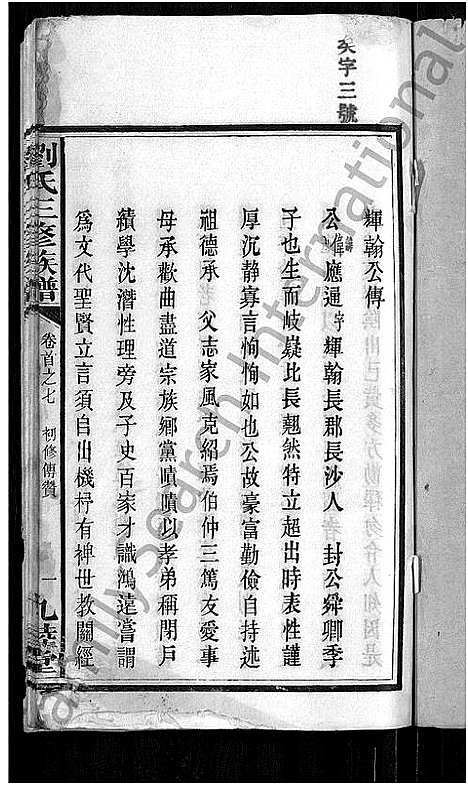 矣字三號
輝翰公傳
公諱偉應通字輝翰長郡長沙人　封公舜卿季
子也生而岐嶷比長翹然特立超出時表性謹
厚沉静寡言恂恂如也公故豪富勤儉自持述
祖德承　父志家風克紹焉伯仲三篤友愛事
母承歡曲盡道宗族鄉黨嘖嘖以孝弟稱閉戶
績學沈潛性理旁及子史百家才識鴻遠嘗謂
爲文代聖賢立言須自出機杼有裨世教關經
劉氏三修族譜
卷首之七　初修傳贊
一
FamilySearch International